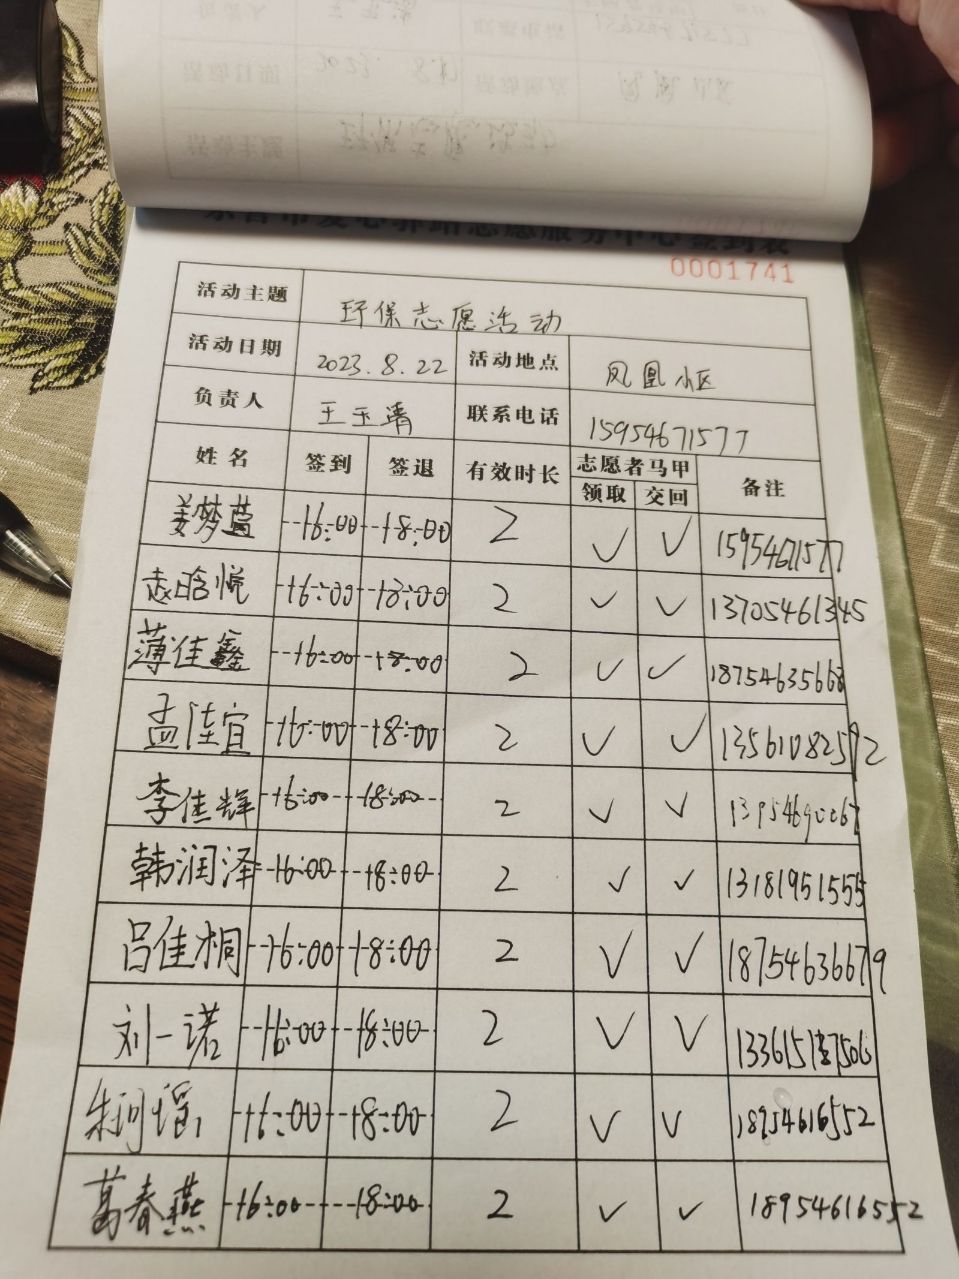 东营市爱心驿站志愿服务中心签到表
0001741
活动主题 环保志愿活动
活动日期 2023.8.22 活动地点 凤凰小区
负责人 王玉清 联系电话 15954671577
姓名 签到 签退 有效时长 志愿者马甲 备注
领取 交回
姜梦萱 16:00 18:00 2 ✓ ✓ 15954671577
赵晗悦 16:00 18:00 2 ✓ ✓ 13705461345
薄佳鑫 16:00 18:00 2 ✓ ✓ 18754635668
孟佳宜 16:00 18:00 2 ✓ ✓ 13561082592
李佳辉 16:00 18:00 2 ✓ ✓
韩润泽 16:00 18:00 2 ✓ ✓ 13181951555
吕佳桐 16:00 18:00 2 ✓ ✓ 18754636679
刘一诺 16:00 18:00 2 ✓ ✓
朱珂瑶 16:00 18:00 2 ✓ ✓ 18954616552
葛春燕 16:00 18:00 2 ✓ ✓ 18954616552